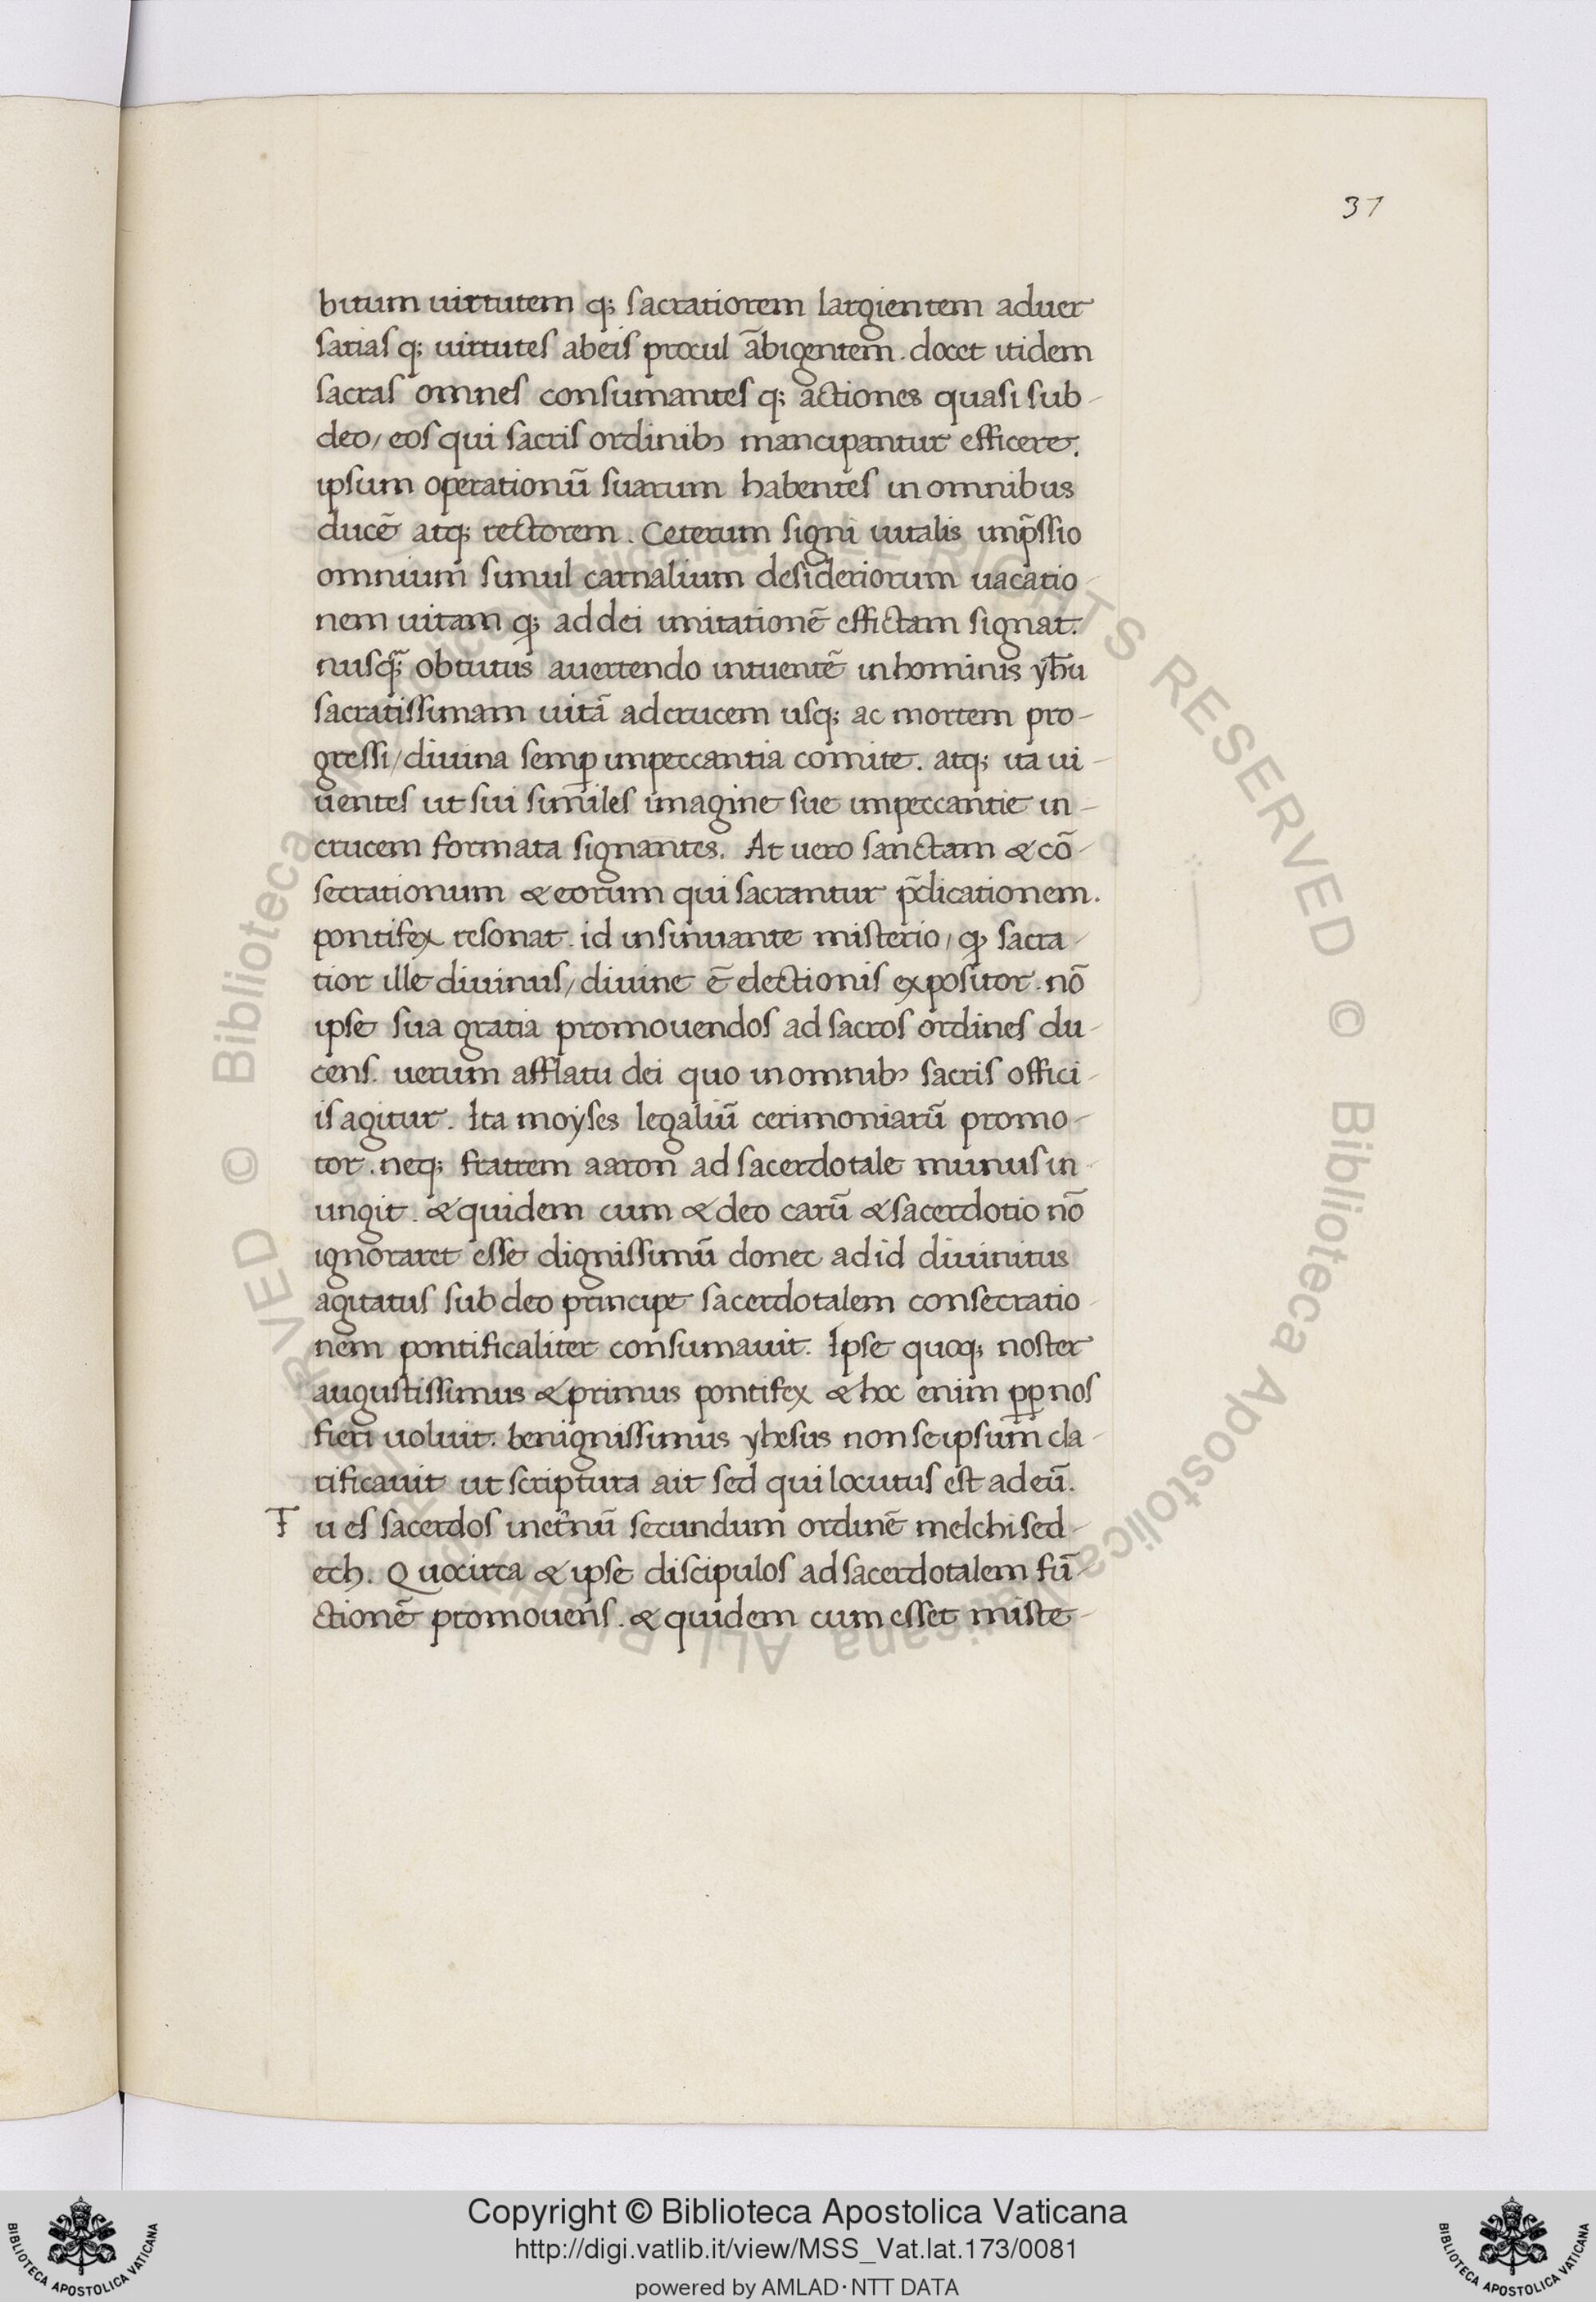 31
bitum uirtutem q; sacratiorem largientem aduer
sarias q; uirtutes abeis procul ābigentem. docet itidem
sacras omnes consumantes q; actiones quasi sub-
deo/ eos qui sacris ordinibꝫ mancipantur efficere.
ipsum operationū suarum habentes in omnibus
ducē atq; rectorem. Ceterum signi uitalis imp̄ssio
omnium simul carnalium desideriorum uacatio-
nem uitam q; ad dei imitationē effictam signat.
nusq̄; obtutus auertendo intuentē in hominis yh̄u
sacratissimam uitā ad crucem usq; ac mortem pro-
gressi/ diuina semꝑ impeccantia comite. atq; ita ui-
uentes ut sui similes imagine sue impeccantie in-
crucem formata signantes. At uero sanctam & cō-
secrationum & eorum qui sacrantur p̄dicationem.
pontifex resonat. id insinuante misterio/ ꝙ sacra-
tior ille diuinus/ diuine ē electionis expositor. nō
ipse sua gratia promouendos ad sacros ordines du-
cens. uerum afflatu dei quo in omnibꝫ sacris offici-
is agitur. Ita moyses legaliū cerimoniarū promo-
tor. neq; fratrem aaron ad sacerdotale munus in-
ungit. & quidem cum & deo carū & sacerdotio nō
ignoraret esse dignissimū donec ad id diuinitus
agitatus sub deo principe sacerdotalem consecratio-
nem pontificaliter consumauit. Ipse quoq; noster
augustissimus & primus pontifex & hoc enim ꝑꝑ nos
fieri uoluit. benignissimus yhesus non se ipsum cla-
rificauit ut scriptura ait sed qui locutus est ad eū.
Tu es sacerdos inet̄nū secundum ordinē melchised-
ech. Quocirca & ipse discipulos ad sacerdotalem fū-
ctionē promouens. & quidem cum esset miste-
© Biblioteca Apostolica Vaticana ALL RIGHTS RESERVED
© Biblioteca Apostolica Vaticana ALL RIGHTS RESERVED
Copyright © Biblioteca Apostolica Vaticana
http://digi.vatlib.it/view/MSS_Vat.lat.173/0081
powered by AMLAD·NTT DATA
BIBLIOTECA APOSTOLICA VATICANA
BIBLIOTECA APOSTOLICA VATICANA